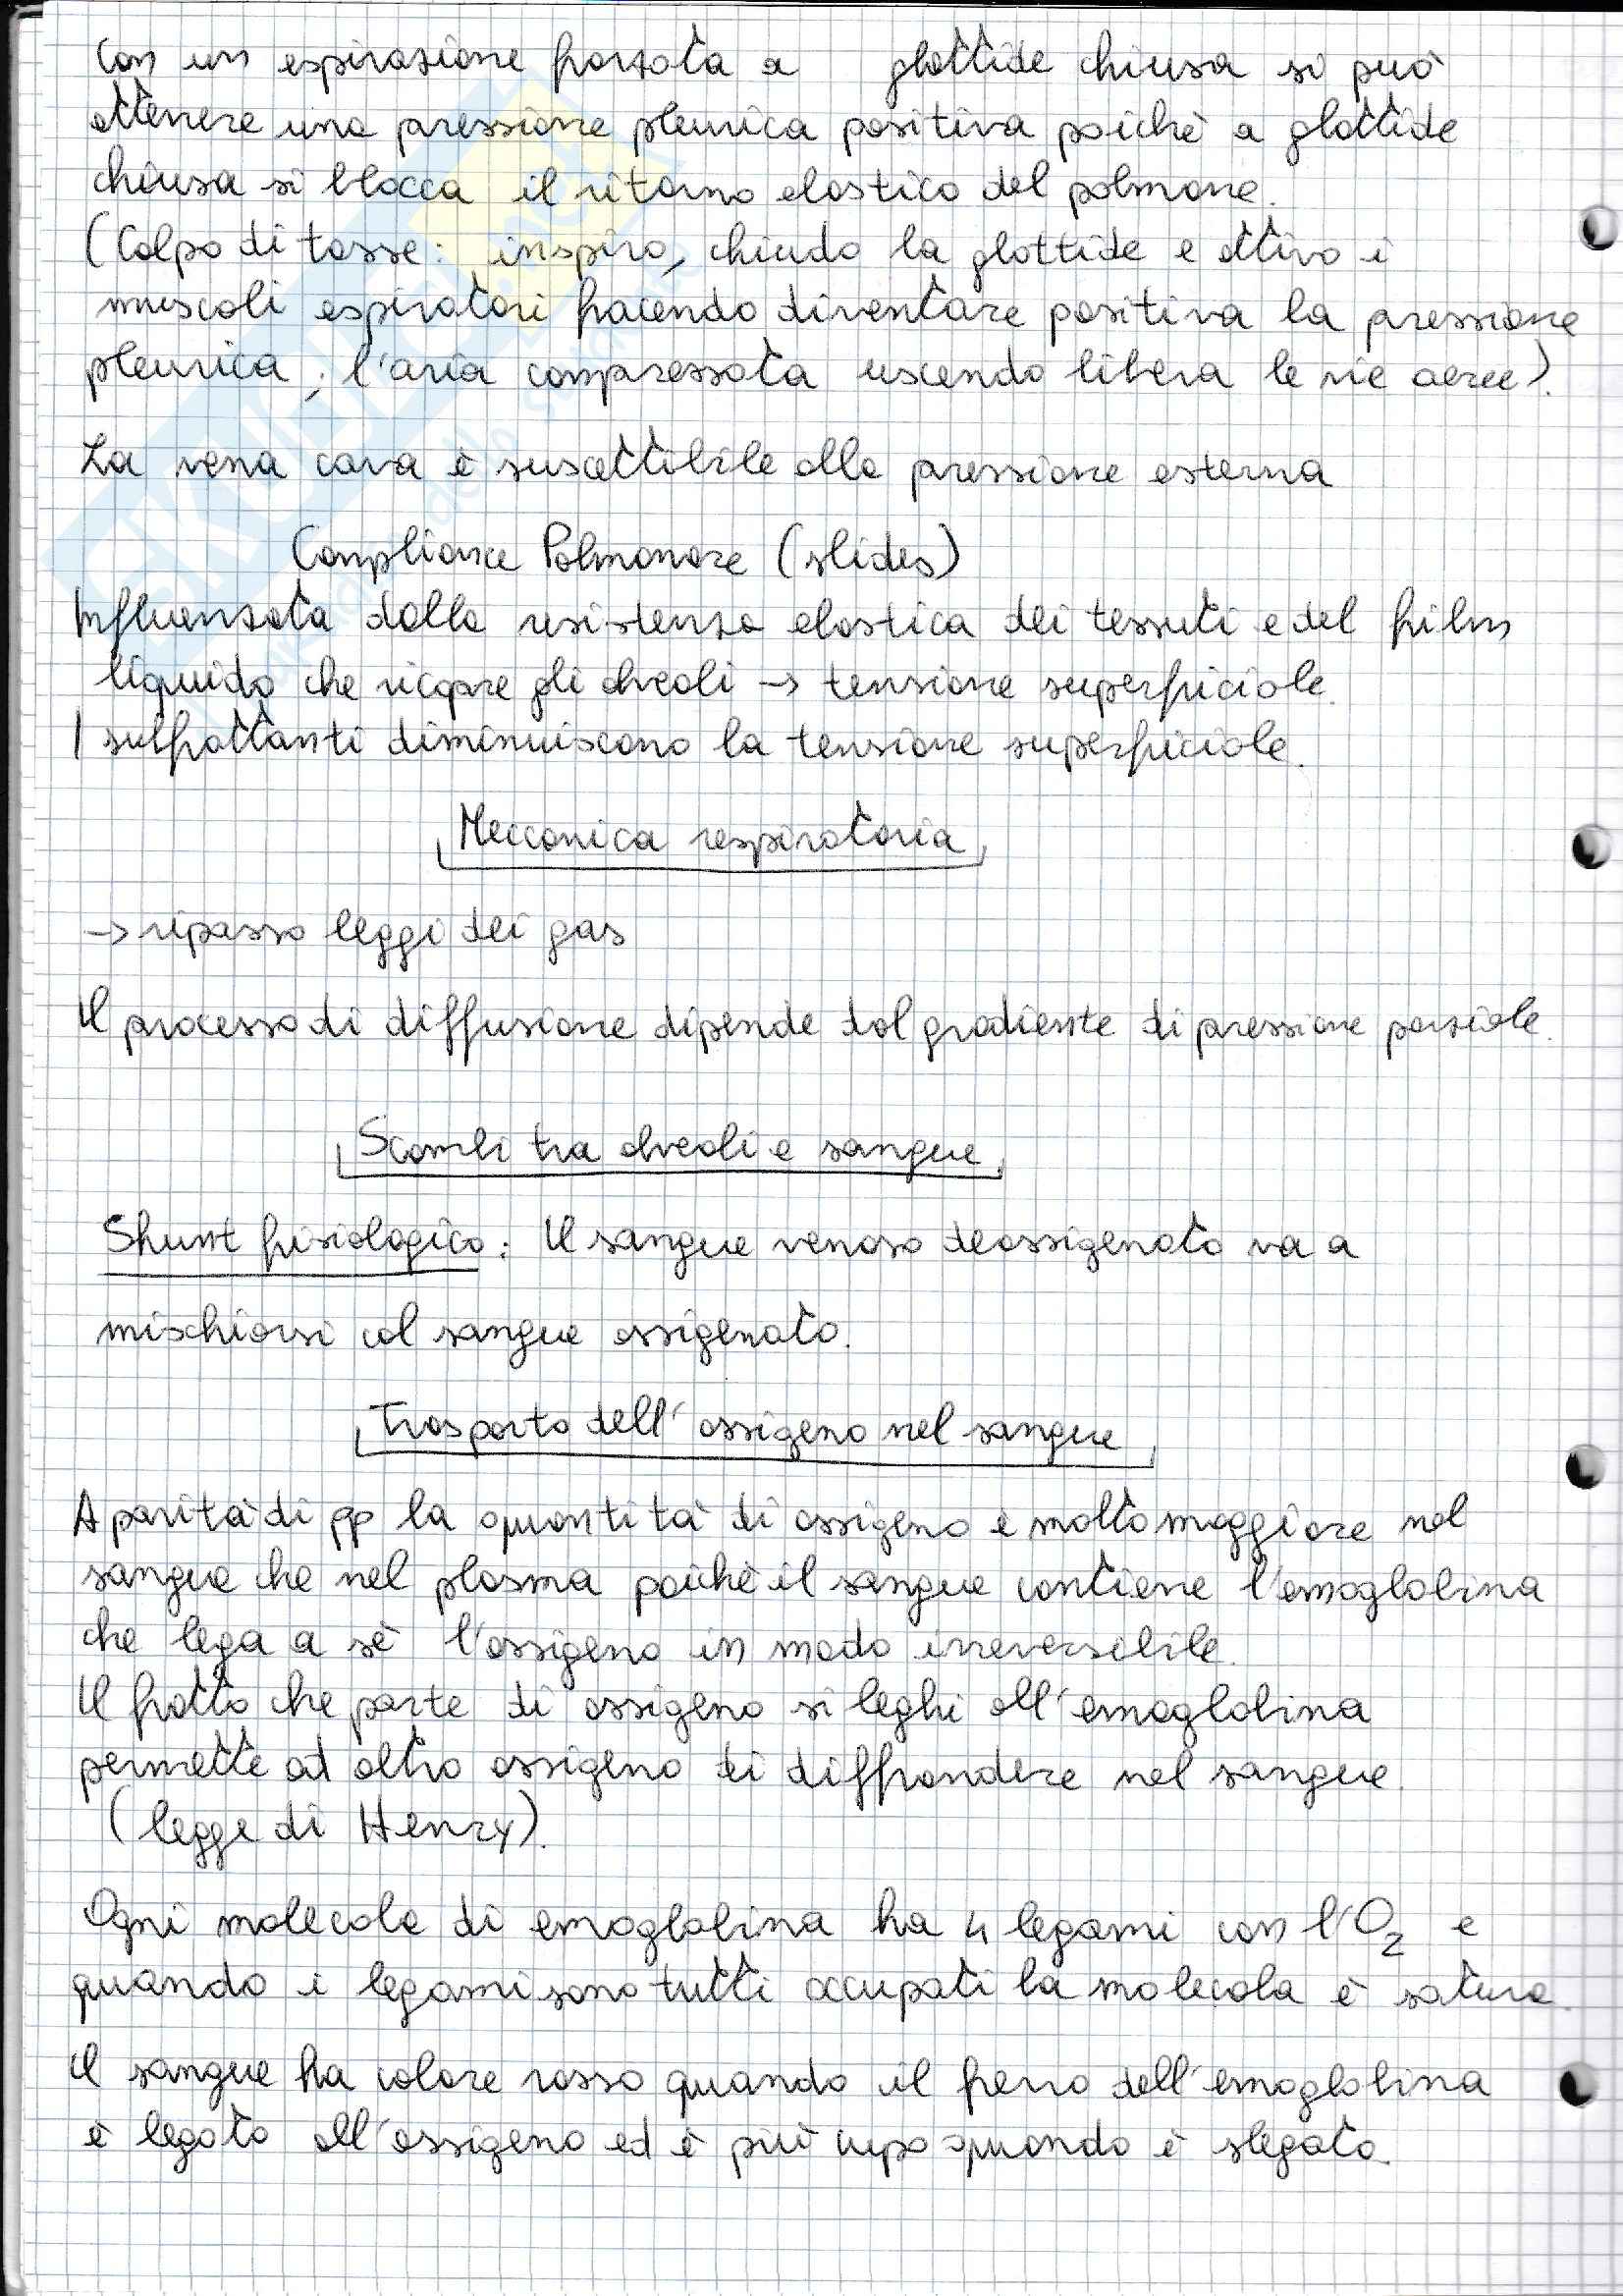 Con un espirazione forzata a glottide chiusa si può
ottenere una pressione pleurica positiva poichè a glottide
chiusa si blocca il ritorno elastico del polmone.
(Colpo di tosse: inspiro, chiudo la glottide e attivo i
muscoli espiratori facendo diventare positiva la pressione
pleurica; l'aria compressata uscendo libera le vie aeree).
La vena cava è suscettibile alla pressione esterna
Compliance Polmonare (slides)
Influenzata dalla resistenza elastica dei tessuti e del film
liquido che ricopre gli alveoli → tensione superficiale.
I sulfattanti diminuiscono la tensione superficiale.
Meccanica respiratoria
→ ripasso leggi dei gas
Il processo di diffusione dipende dal gradiente di pressione parziale.
Scambi tra alveoli e sangue
Shunt fisiologico: Il sangue venoso deossigenato va a
mischiarsi col sangue ossigenato.
Trasporto dell'ossigeno nel sangue
A parità di pp la quantità di ossigeno è molto maggiore nel
sangue che nel plasma poichè il sangue contiene l'emoglobina
che lega a sè l'ossigeno in modo irreversibile.
Il fatto che parte di ossigeno si leghi all'emoglobina
permette ad altro ossigeno di diffondere nel sangue.
(legge di Henry).
Ogni molecola di emoglobina ha 4 legami con l'O2 e
quando i legami sono tutti occupati la molecola è satura.
Il sangue ha colore rosso quando il ferro dell'emoglobina
è legato all'ossigeno ed è più cupo quando è slegato.